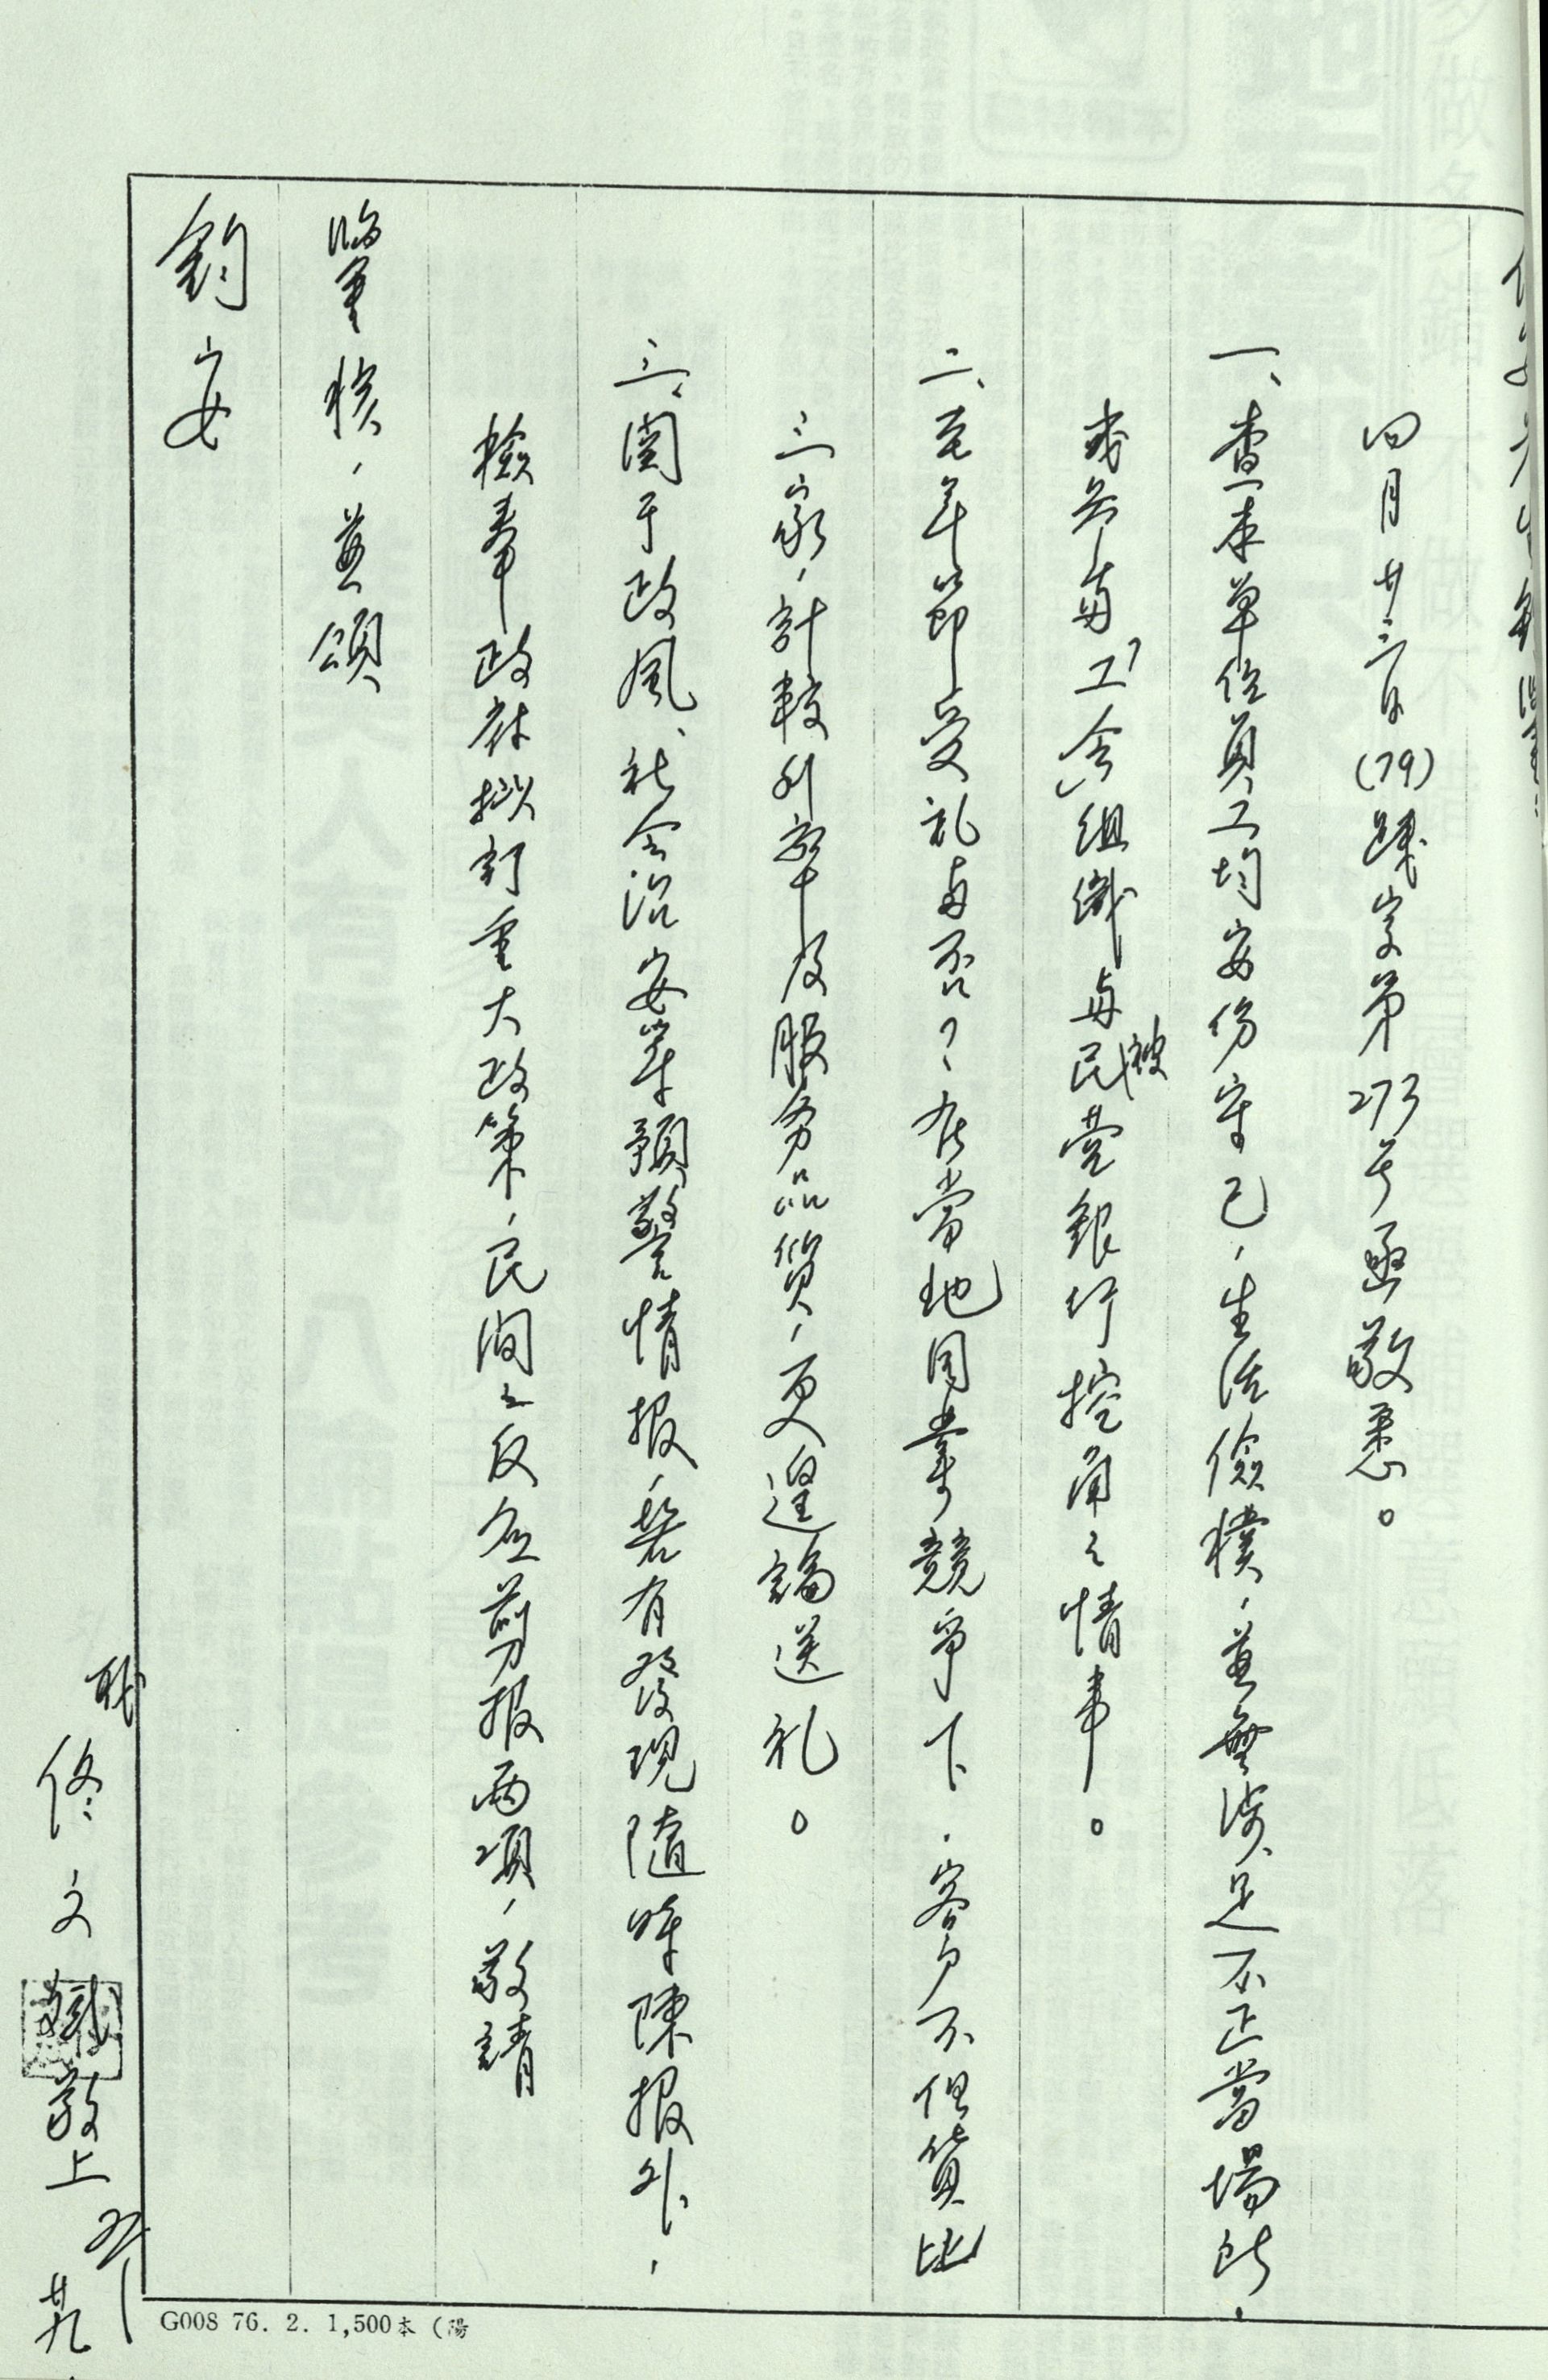 四月廿三日(79)踐字第273号函敬悉。
一、查本單位員工均安份守己，生活儉樸，並無涉足不正當場所，
或參與「工會」組織與民營被銀行挖角之情事。
二、至年節受礼與否？在當地同業競爭下，客戶不但貨比
三家，計較利率及服務品質，更遑論送礼。
三、関于政風、社會治安等預警情報，若有發現隨時陳報外，
檢奉政府擬訂重大政策，民间之反应剪報兩項，敬請
鑒核，並頌
鈞安
職 佟文 敬上
廿九
G008 76. 2. 1,500本 (陽